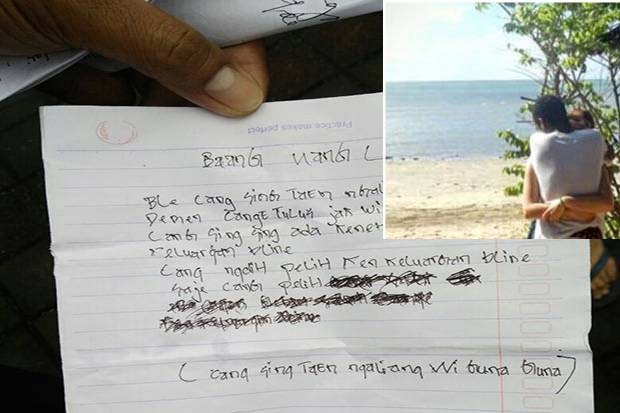 Practice makes perfect
Baang Nang
Ble cang sing taen
Demen cange tulus jak Wi
Cang sing sing ada
keluargan bline
Cang ngidih pelih ken keluargan bline
Saje cang pelih
(cang sing taen ngaliang Wi Guna Guna)